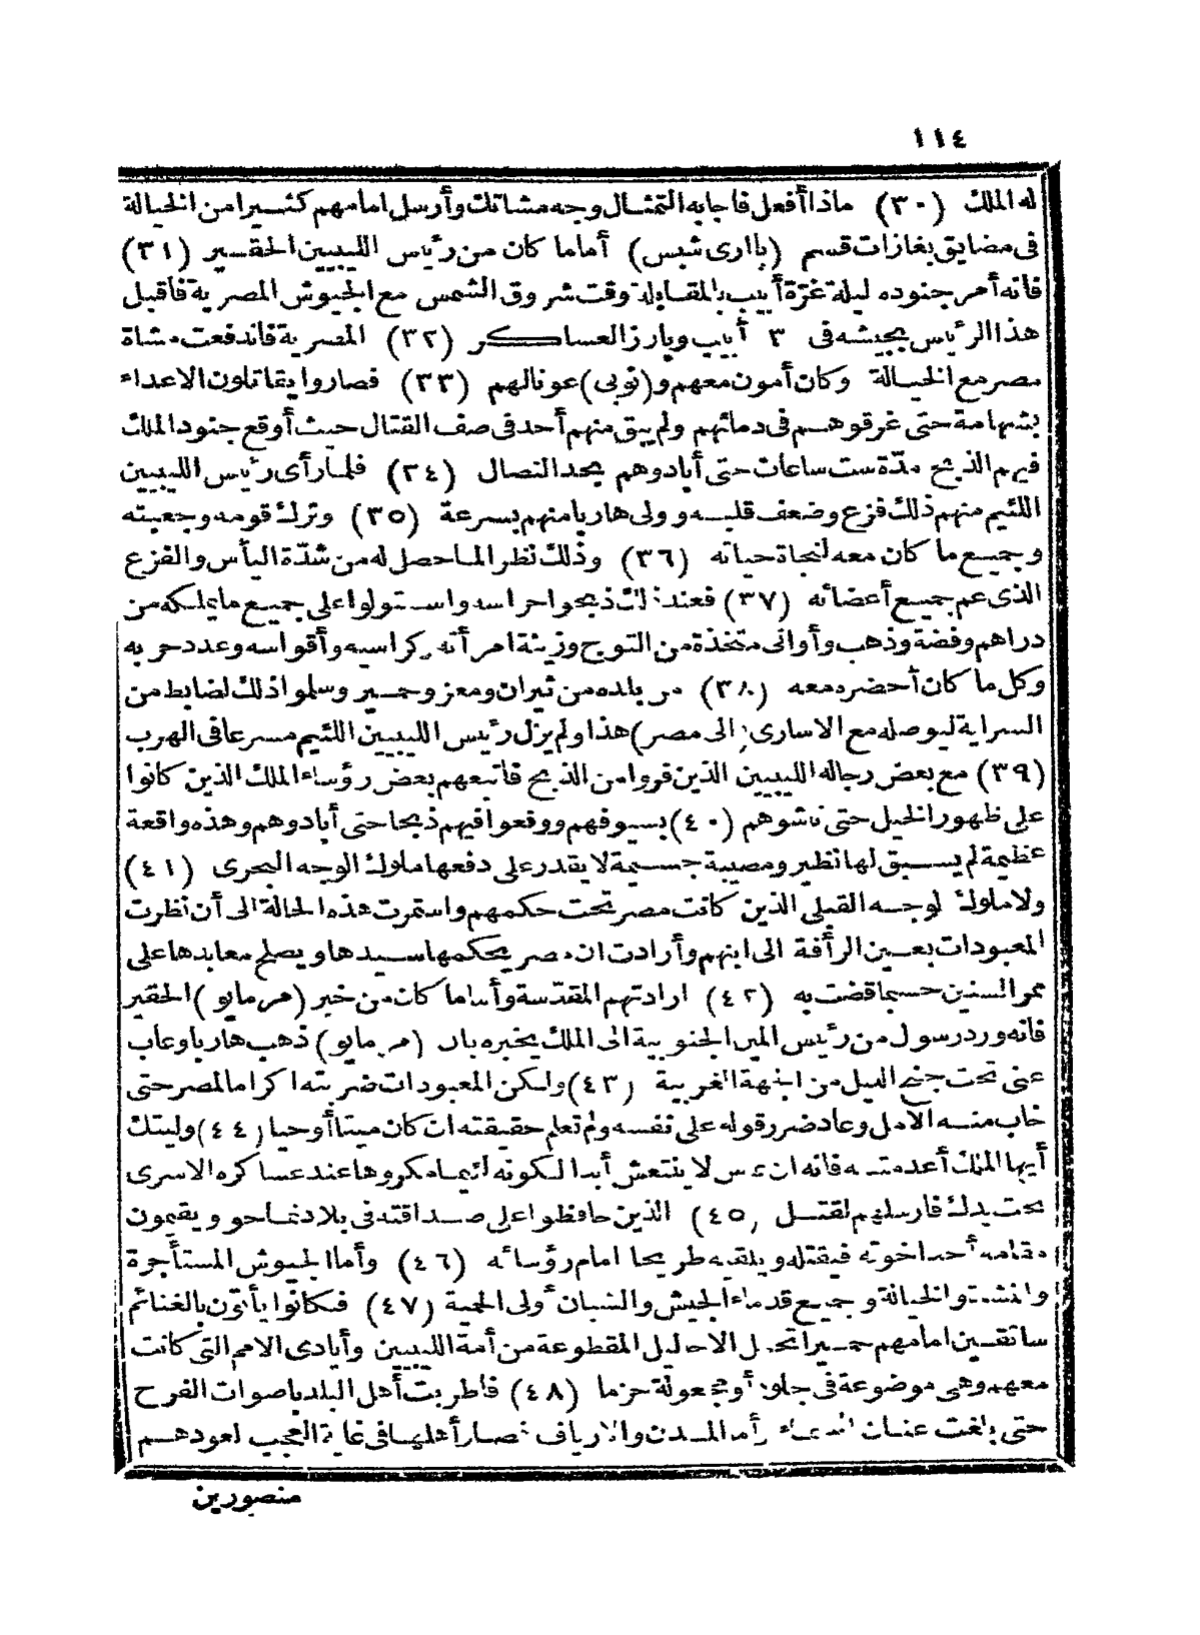 ١١٤
له الملك (٣٠) ماذا أفعل فاجابه التمثال وجه مشاتك وأرسل امامهم كثيرا من الخيالة
فى مضايق بغازات قسم (باارى شبس) أماما كان من رئيس الليبيين الحقير (٣١)
فانه أمر جنوده ليلة غرّة أبيب بالمقابلة وقت شروق الشمس مع الجيوش المصرية فاقبل
هذا الرئيس بجيشه فى ٣ أبيب وبارز العساكر (٣٢) المصرية فاندفعت مشاة
مصر مع الخيالة وكان أمون معهم و(نوبى) عونا لهم (٣٣) فصاروا يقاتلون الاعداء
بشهامة حتى غرقوهم فى دمائهم ولم يبق منهم أحد فى صف القتال حيث أوقع جنود الملك
فيهم الذبح مدّة ست ساعات حتى أبادوهم بحد النصال (٣٤) فلما رأى رئيس الليبيين
اللئيم منهم ذلك فزع وضعف قلبه وولى هاربا منهم بسرعة (٣٥) وترك قومه وجعبته
وجميع ما كان معه لنجاة حياته (٣٦) وذلك نظر الما حصل له من شدّة اليأس والفزع
الذى عم جميع أعضائه (٣٧) فعند ذلك ذبحوا حراسه واستولوا على جميع ما يملكه من
دراهم وفضة وذهب وأوانى متخذة من التوج وزينة امرأته وكراسيه وأقواسه وعدد حربه
وكل ما كان أحضره معه (٣٨) من بلده من ثيران ومعز وحمير وسلموا ذلك لضابط من
السراية ليوصله مع الاسارى (الى مصر) هذا ولم يزل رئيس الليبيين اللئيم مسرعا فى الهرب
(٣٩) مع بعض رجاله الليبيين الذين فروا من الذبح فاتبعهم بعض رؤساء الملك الذين كانوا
على ظهور الخيل حتى ناشوهم (٤٠) بسيوفهم ووقعوا فيهم ذبحا حتى أبادوهم وهذه واقعة
عظيمة لم يسبق لها نظير ومصيبة جسيمة لا يقدر على دفعها ملوك الوجه البحرى (٤١)
ولا ملوك لوجه القبلى الذين كانت مصر تحت حكمهم واستمرت هذه الحالة الى أن نظرت
المعبودات بعين الرأفة الى ابنهم وأرادت ان مصر يحكمها سيدها ويصلح معابدها على
ممر السنين حسبما قضت به (٤٢) ارادتهم المقدسة وأما ما كان من خبر (مرمايو) الحقير
فانه ورد رسول من رئيس المير الجنوبية الى الملك يخبره بان (مرمايو) ذهب هاربا وغاب
عنى تحت جنح الليل من الجهة الغربية (٤٣) ولكن المعبودات ضربته اكراما لمصر حتى
خاب منه الامل وعاد ضرر قوله على نفسه ولم تعلم حقيقته ان كان ميتا أو حيا (٤٤) وليتك
أيها الملك أعدمته فانه ان عس لا ينتعش أبدا لكونه لئيما مكروها عند عساكره الاسرى
تحت يدك فارسلهم لقتل (٤٥) الذين حافظوا على صداقته فى بلاد تماحو ويقيمون
مقامه أحد اخوته فيقتله ويلقيه طريحا امام رؤسائه (٤٦) وأما الجيوش المستأجرة
والمشتو الخيالة وجميع قدماء الجيش والشبان أولى الحمية (٤٧) فكانوا يأتون بالغنائم
سائقين امامهم حميرا تحمل الاحليل المقطوعة من أمة الليبيين وأيادى الامم التى كانت
معهم وهى موضوعة فى جلود أو مجعولة حزما (٤٨) فاطربت أهل البلد باصوات الفرح
حتى بلغت عنان السماء أما المدن والارياف فصار أهلها فى غاية العجب لعودهم
منصورين